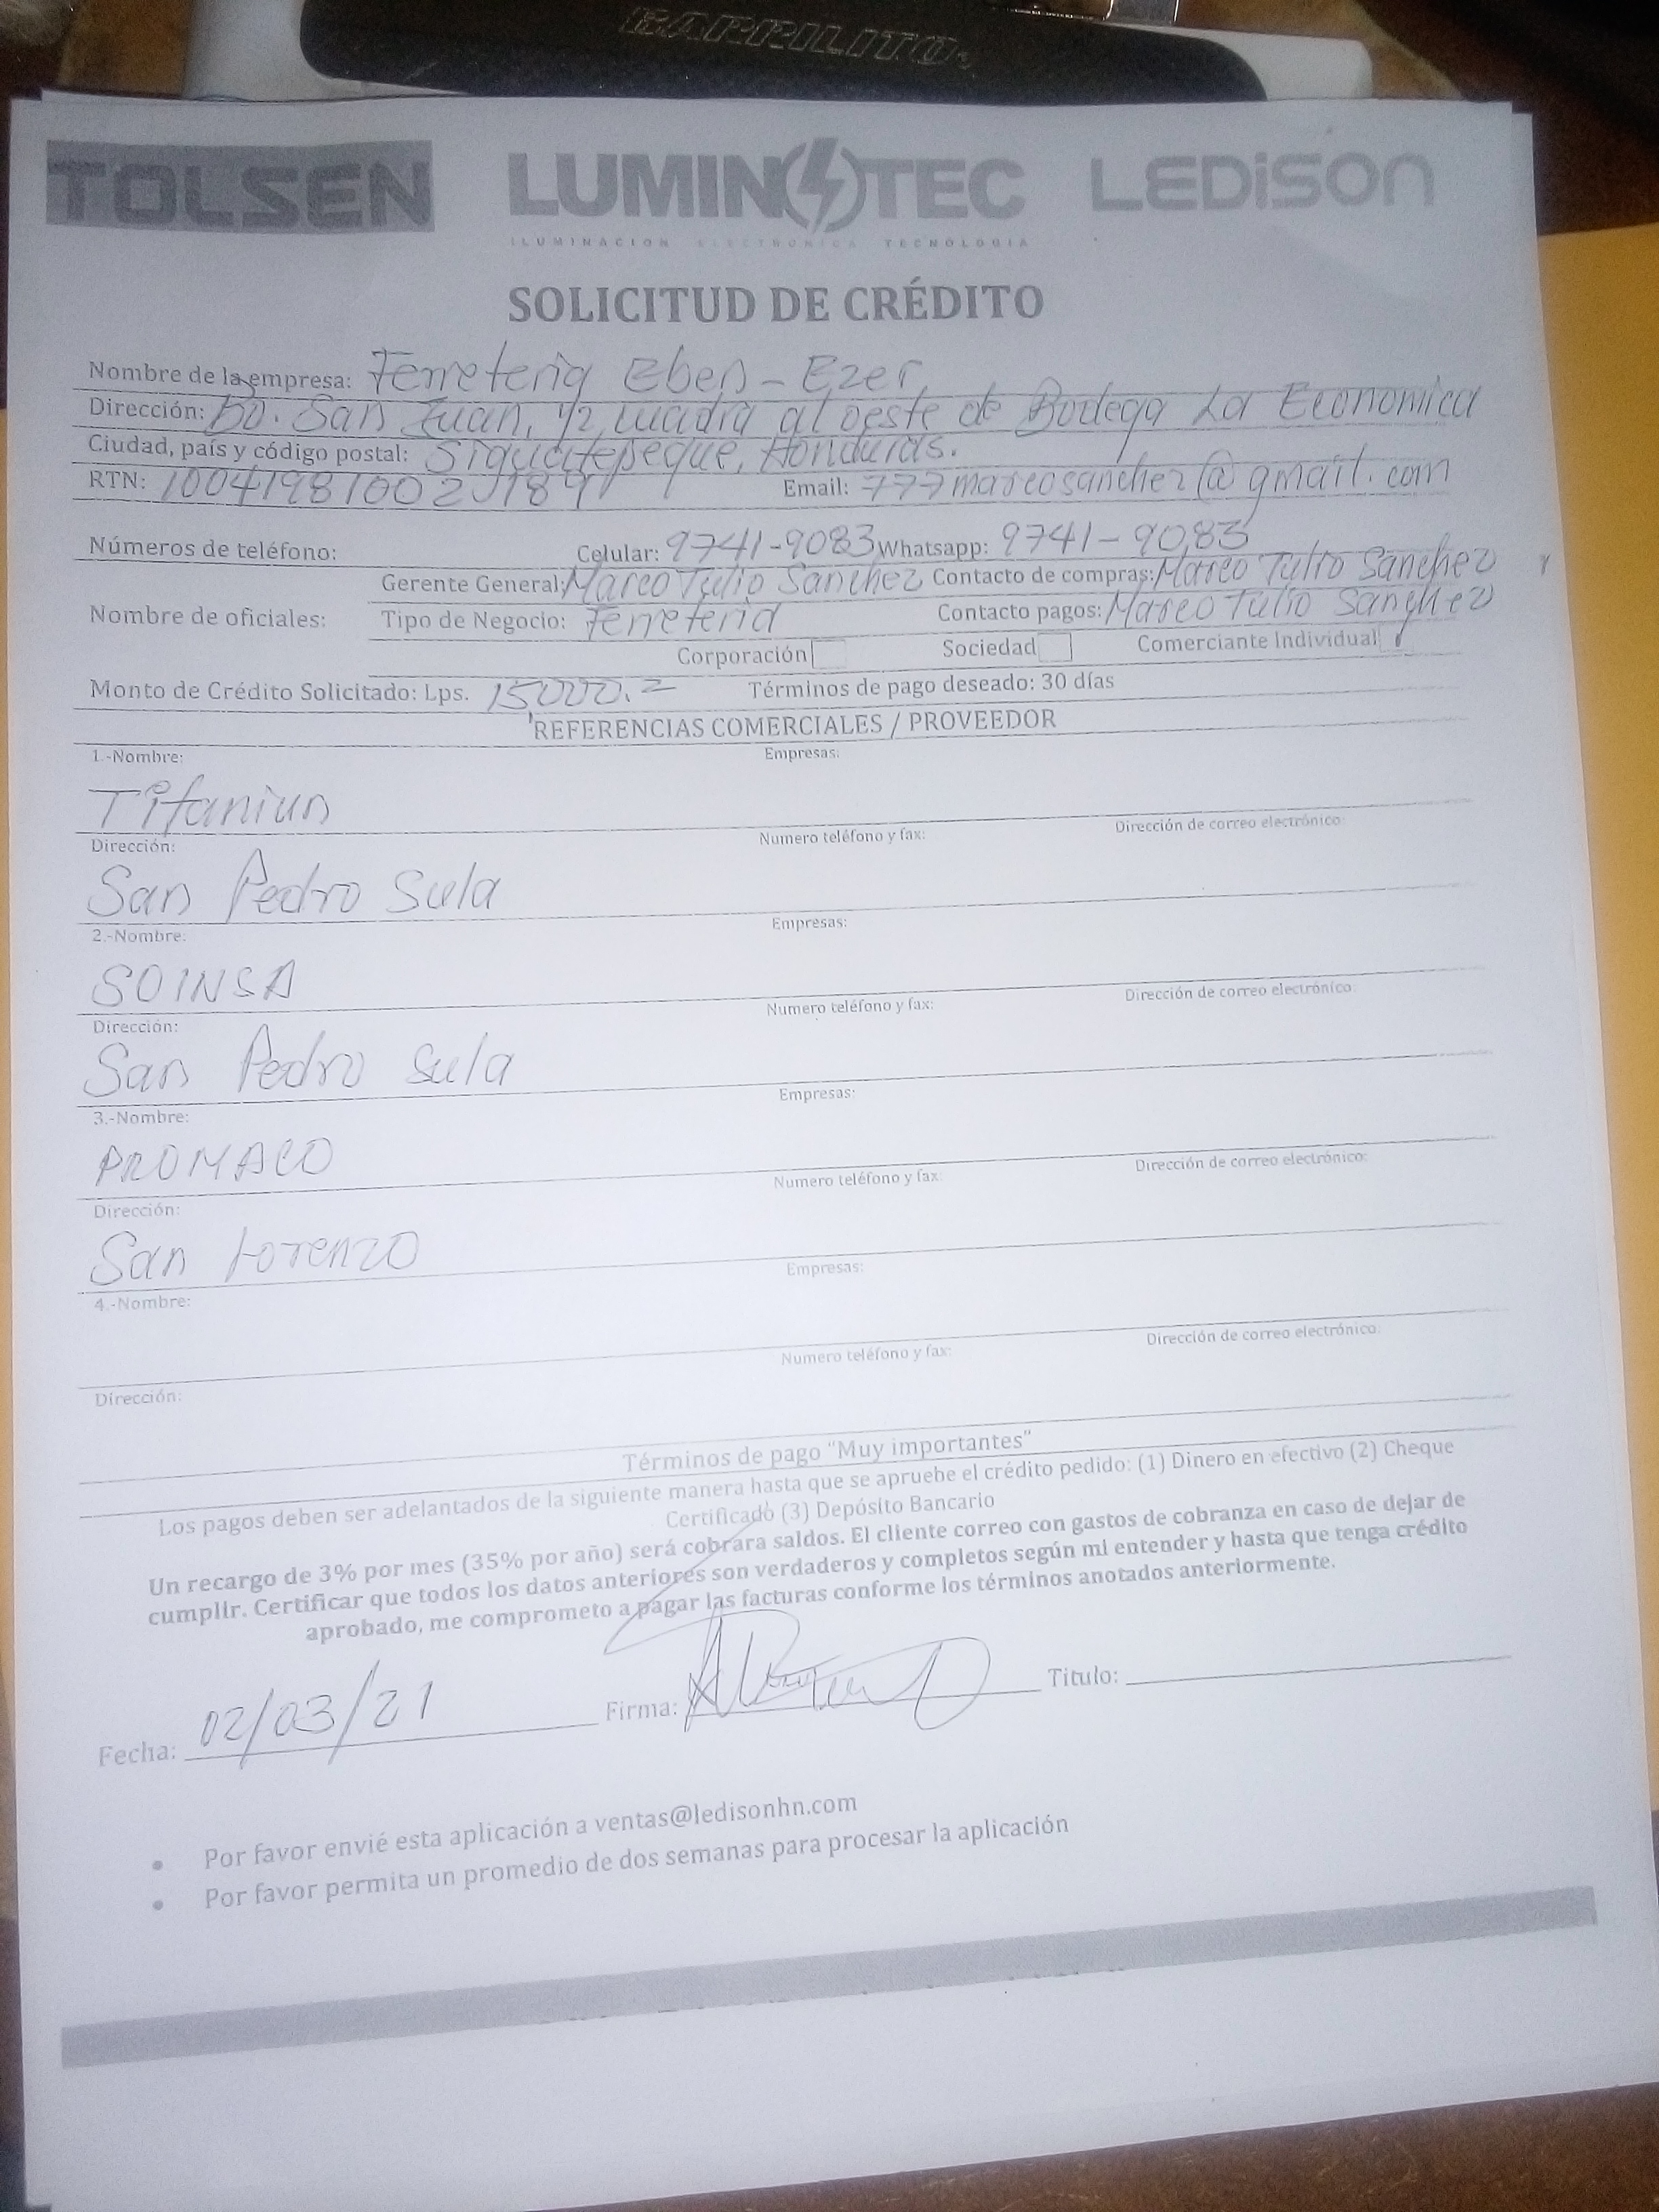 BARRILITO
TOLSEN LUMINOTEC LEDiSON
ILUMINACION ELECTRONICA TECNOLOGIA
SOLICITUD DE CRÉDITO
Nombre de la empresa: Ferreteria Eben-Ezer
Dirección: Bo. San Juan, 1/2 cuadra al oeste de Bodega La Economica
Ciudad, país y código postal: Siguatepeque, Honduras.
RTN: Email: 777marcosanchez@gmail.com
Números de teléfono: Celular: 9741-9083 Whatsapp: 9741-9083
Gerente General: Marco Tulio Sanchez Contacto de compras: Marco Tulio Sanchez
Nombre de oficiales: Tipo de Negocio: Ferreteria Contacto pagos: Marco Tulio Sanchez
Corporación Sociedad Comerciante Individual
Monto de Crédito Solicitado: Lps. 15000.= Términos de pago deseado: 30 días
REFERENCIAS COMERCIALES / PROVEEDOR
1.-Nombre: Empresas:
Titaniun
Dirección: Numero teléfono y fax: Dirección de correo electrónico:
San Pedro Sula
2.-Nombre: Empresas:
SOINSA
Dirección: Numero teléfono y fax: Dirección de correo electrónico:
San Pedro Sula
3.-Nombre: Empresas:
PROMACO
Dirección: Numero teléfono y fax: Dirección de correo electrónico:
San Lorenzo
4.-Nombre: Empresas:
Dirección: Numero teléfono y fax: Dirección de correo electrónico:
Términos de pago "Muy importantes"
Los pagos deben ser adelantados de la siguiente manera hasta que se apruebe el crédito pedido: (1) Dinero en efectivo (2) Cheque
Certificado (3) Depósito Bancario
Un recargo de 3% por mes (35% por año) será cobrara saldos. El cliente correo con gastos de cobranza en caso de dejar de
cumplir. Certificar que todos los datos anteriores son verdaderos y completos según mi entender y hasta que tenga crédito
aprobado, me comprometo a pagar las facturas conforme los términos anotados anteriormente.
Fecha: 02/03/21 Firma: Titulo:
• Por favor envié esta aplicación a ventas@ledisonhn.com
• Por favor permita un promedio de dos semanas para procesar la aplicación